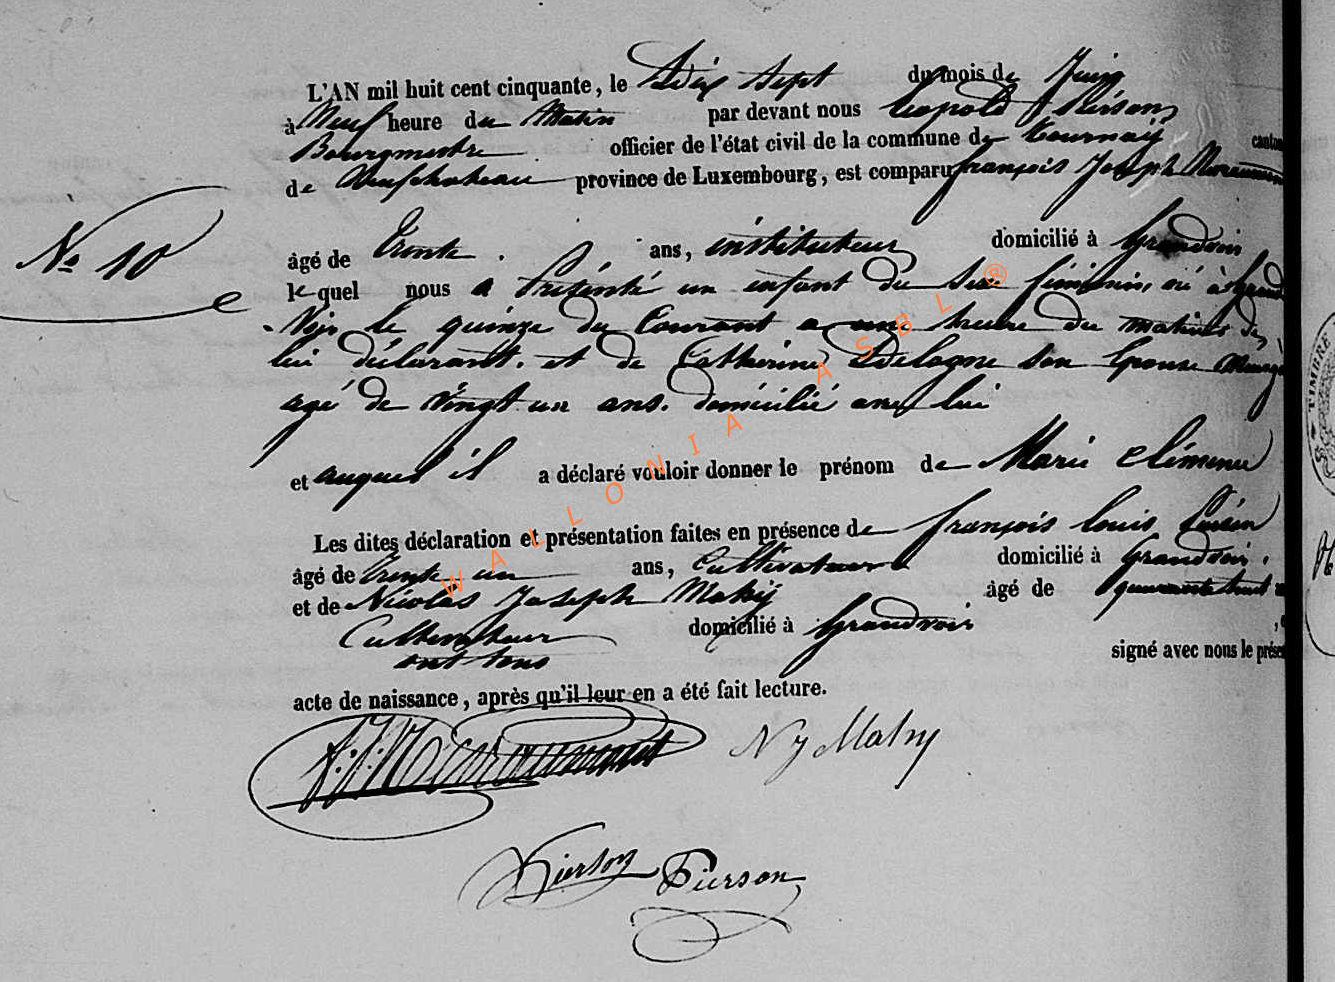 L'AN mil huit cent cinquante, le Dix sept du mois de Juin
à Neuf heure du Matin par devant nous Léopold Piérson
Bourgmestre officier de l'état civil de la commune de Tournaÿ canton
de Neufchateau province de Luxembourg, est comparu françois Joseph
N° 10
âgé de Trente ans, instituteur domicilié à Grandvoir
lequel nous a Présénté un enfant du sexe féminin, né à Grand
Voir le quinze du Courant a une heure du matin de
lui déclarant. et de Catherine Delogne son Epouse
agé de vingt un ans. domicilié avec lui
et auquel il a déclaré vouloir donner le prénom de Marie
Les dites déclaration et présentation faites en présence de françois Louis
âgé de Trente un ans, Cultivateur domicilié à Grandvoir,
et de Nicolas Joseph Mahÿ âgé de quarante huit
Cultivateur domicilié à Grandvoir
ont tous signé avec nous le présen
acte de naissance, après qu'il leur en a été fait lecture.
N J Mahy
Pierson Pierson
WALLONIA ASBL ®
TIMBRE